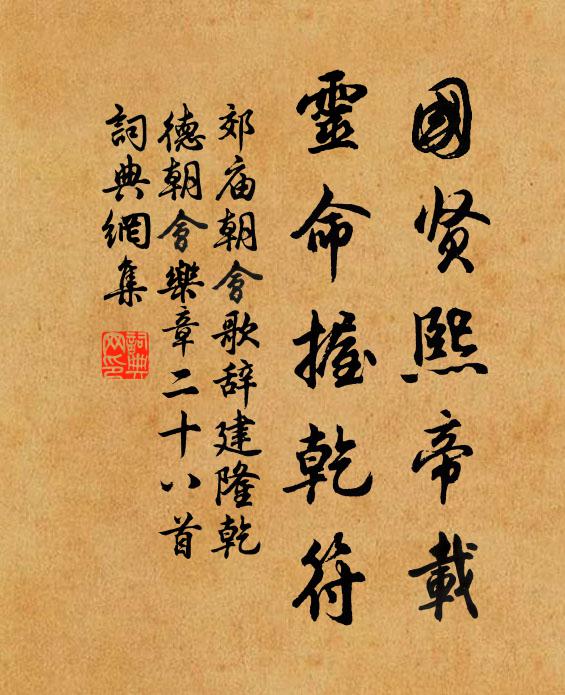 國贤熙帝載
靈命握乾符
郊庙朝會歌辞建隆乾
德朝會樂章二十八首
詞典網集
詞典
网印